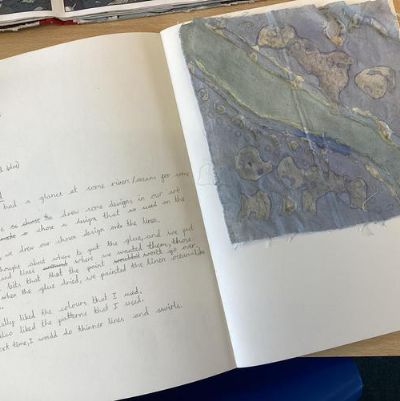 blue)
had a glance at some river/oceans for some
draw some designs in our art
chose a design that we used on the
we drew our chosen design onto the linen.
about where to put the glue, and we put
lines where we wanted them, those
bits that that the paint wouldn't go over.
when the glue dried, we painted the linen
liked the colours that I used.
also liked the patterns that I used.
next time, I would do thinner lines and swirls.